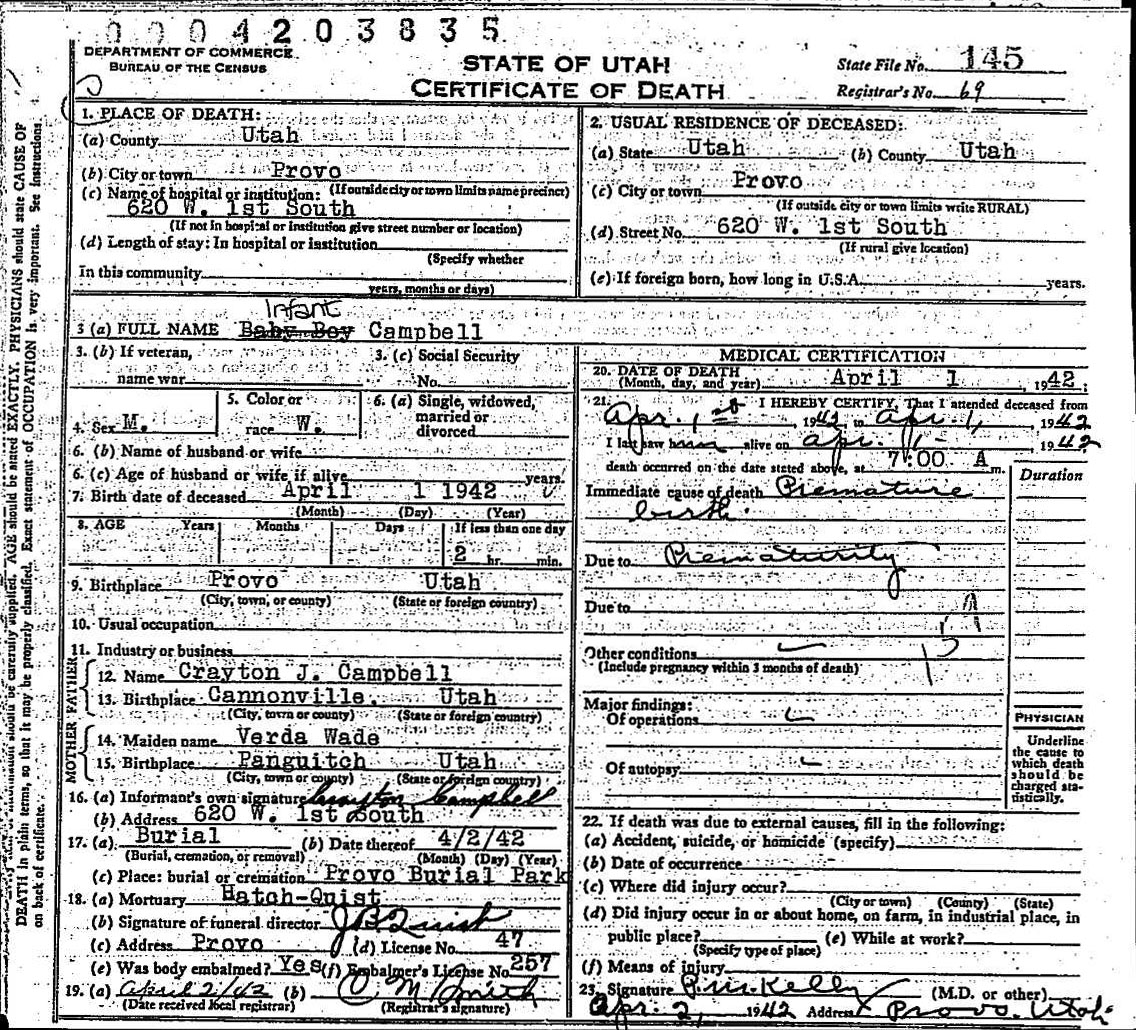 0004203835
DEPARTMENT OF COMMERCE
BUREAU OF THE CENSUS
STATE OF UTAH
CERTIFICATE OF DEATH
State File No. 145
Registrar's No. 69
1. PLACE OF DEATH:
(a) County Utah
(b) City or town Provo
(If outside city or town limits name precinct)
(c) Name of hospital or institution:
620 W. 1st South
(If not in hospital or institution give street number or location)
(d) Length of stay: In hospital or institution
(Specify whether
In this community
years, months or days)
2. USUAL RESIDENCE OF DECEASED:
(a) State Utah (b) County Utah
(c) City or town Provo
(If outside city or town limits write RURAL)
(d) Street No. 620 W. 1st South
(If rural give location)
(e) If foreign born, how long in U.S.A. years.
Infant
3 (a) FULL NAME Baby Boy Campbell
3. (b) If veteran,
name war
3. (c) Social Security
No.
4. Sex M.
5. Color or
race W.
6. (a) Single, widowed,
married or
divorced
6. (b) Name of husband or wife
6. (c) Age of husband or wife if alive years.
7. Birth date of deceased April 1 1942
(Month) (Day) (Year)
8. AGE Years Months Days If less than one day
2 hr. min.
9. Birthplace Provo Utah
(City, town, or county) (State or foreign country)
10. Usual occupation
11. Industry or business
FATHER
12. Name Crayton J. Campbell
13. Birthplace Cannonville. Utah
(City, town or county) (State or foreign country)
MOTHER
14. Maiden name Verda Wade
15. Birthplace Panguitch Utah
(City, town or county) (State or foreign country)
16. (a) Informant's own signature Crayton Campbell
(b) Address 620 W. 1st South
17. (a) Burial (b) Date thereof 4/2/42
(Burial, cremation, or removal) (Month) (Day) (Year)
(c) Place: burial or cremation Provo Burial Park
18. (a) Mortuary Hatch-Quist
(b) Signature of funeral director J B Quist
(c) Address Provo (d) License No. 47
(e) Was body embalmed? Yes (f) Embalmer's License No 257
19. (a) April 2/42 (b) O M Smith
(Date received local registrar) (Registrar's signature)
MEDICAL CERTIFICATION
20. DATE OF DEATH
(Month, day, and year) April 1, 1942
21. I HEREBY CERTIFY, That I attended deceased from
Apr. 1st 1942 to Apr. 1, 1942
I last saw him alive on Apr. 1 - 1942
death occurred on the date stated above, at 7:00 A m.
Duration
Immediate cause of death Premature
birth.
Due to Prematurity
Due to
Other conditions
(Include pregnancy within 3 months of death)
Major findings:
Of operations
Of autopsy
PHYSICIAN
Underline
the cause to
which death
should be
charged sta-
tistically.
22. If death was due to external causes, fill in the following:
(a) Accident, suicide, or homicide (specify)
(b) Date of occurrence
(c) Where did injury occur?
(City or town) (County) (State)
(d) Did injury occur in or about home, on farm, in industrial place, in
public place? (e) While at work?
(Specify type of place)
(f) Means of injury
23. Signature P.M. Kelly (M.D. or other)
Apr. 2, 1942 Address Provo. Utah
information should be carefully supplied. AGE should be stated EXACTLY. PHYSICIANS should state CAUSE OF
DEATH in plain terms, so that it may be properly classified. Exact statement of OCCUPATION is very important. See instructions
on back of certificate.